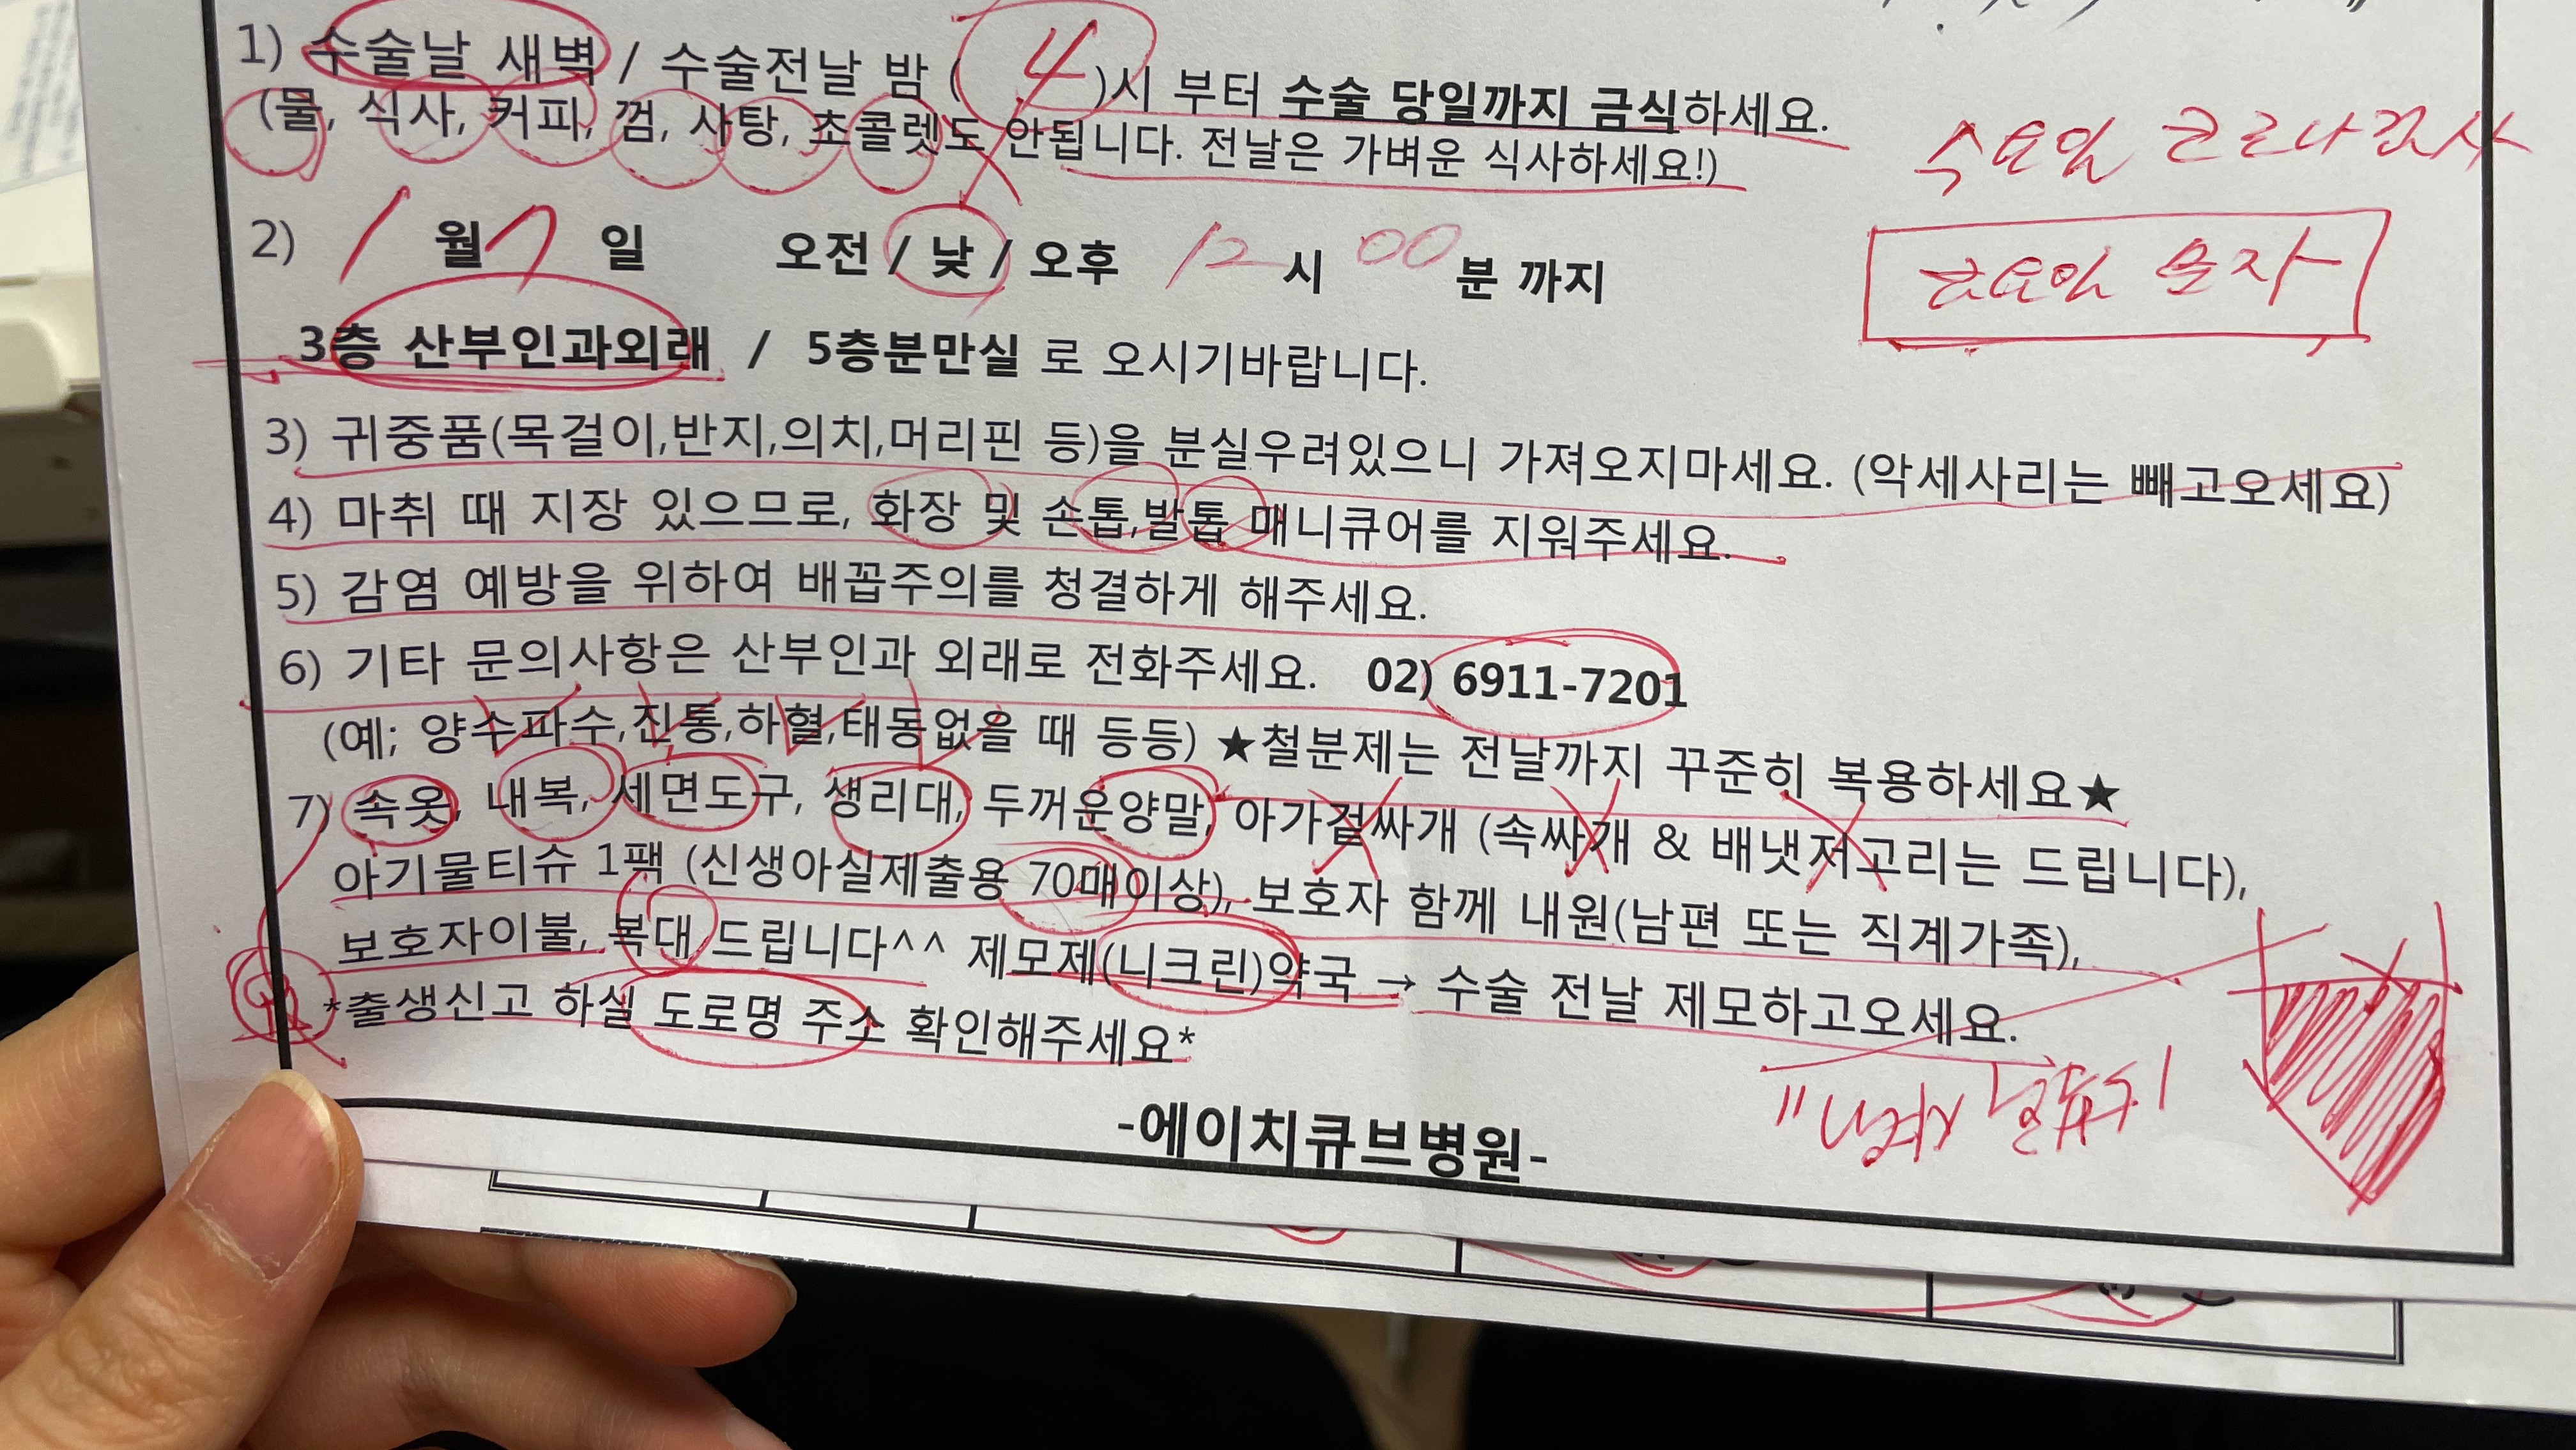 1) 수술날 새벽 / 수술전날 밤 ( 4 )시 부터 수술 당일까지 금식하세요.
(물, 식사, 커피, 껌, 사탕, 초콜렛도 안됩니다. 전날은 가벼운 식사하세요!)
수요일 코로나검사
금요일 문자
2) 1 월 7 일 오전 / 낮 / 오후 12 시 00 분 까지
3층 산부인과외래 / 5층분만실 로 오시기바랍니다.
3) 귀중품(목걸이,반지,의치,머리핀 등)을 분실우려있으니 가져오지마세요. (악세사리는 빼고오세요)
4) 마취 때 지장 있으므로, 화장 및 손톱,발톱 매니큐어를 지워주세요.
5) 감염 예방을 위하여 배꼽주의를 청결하게 해주세요.
6) 기타 문의사항은 산부인과 외래로 전화주세요. 02) 6911-7201
(예; 양수파수,진통,하혈,태동없을 때 등등) ★철분제는 전날까지 꾸준히 복용하세요★
7) 속옷, 내복, 세면도구, 생리대, 두꺼운양말, 아가겉싸개 (속싸개 & 배냇저고리는 드립니다),
아기물티슈 1팩 (신생아실제출용 70매이상), 보호자 함께 내원(남편 또는 직계가족),
보호자이불, 복대 드립니다^^ 제모제(니크린)약국 → 수술 전날 제모하고오세요.
*출생신고 하실 도로명 주소 확인해주세요*
-에이치큐브병원-